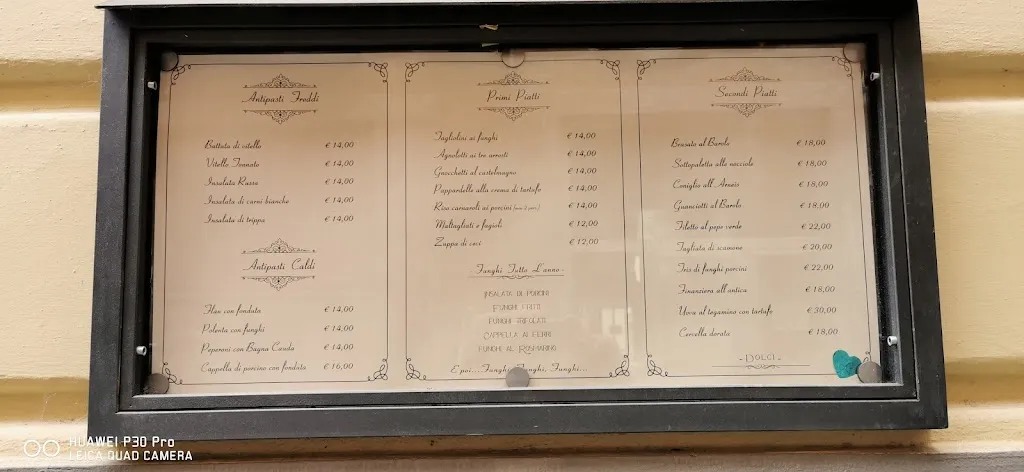 Antipasti Freddi
Battuta di vitello € 14,00
Vitello Tonnato € 14,00
Insalata Russa € 14,00
Insalata di carni bianche € 14,00
Insalata di trippa € 14,00
Antipasti Caldi
Flan con fonduta € 14,00
Polenta con funghi € 14,00
Peperoni con Bagna Cauda € 14,00
Cappella di porcino con fonduta € 16,00
Primi Piatti
Tagliolini ai funghi € 14,00
Agnolotti ai tre arrosti € 14,00
Gnocchetti al castelmagno € 14,00
Pappardelle alla crema di tartufo € 14,00
Riso carnaroli ai porcini € 14,00
Maltagliati e fagioli € 12,00
Zuppa di ceci € 12,00
- Funghi Tutto L'anno -
Insalata di porcini
Funghi fritti
Funghi trifolati
Cappella ai ferri
Funghi al Rosmarino
E poi... Funghi, Funghi, Funghi...
Secondi Piatti
Brasato al Barolo € 18,00
Sottopaletta alle nocciole € 18,00
Coniglio all'Arneis € 18,00
Guanciotti al Barolo € 18,00
Filetto al pepe verde € 22,00
Tagliata di scamone € 20,00
Tris di funghi porcini € 22,00
Finanziera all'antica € 18,00
Uova al tegamino con tartufo € 30,00
Cervella dorata € 18,00
- Dolci -
HUAWEI P30 Pro
LEICA QUAD CAMERA